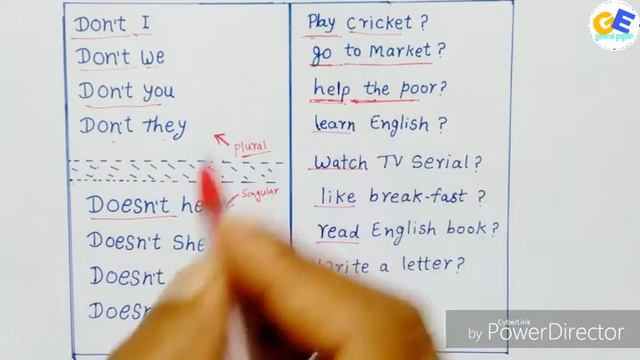 Don't I
Don't we
Don't you
Don't they
plural
singular
Doesn't he
Doesn't she
Doesn't
Play cricket ?
go to Market ?
help the poor?
learn English ?
Watch TV Serial ?
like break-fast ?
read English book?
a letter?
GE
by PowerDirector
CyberLink